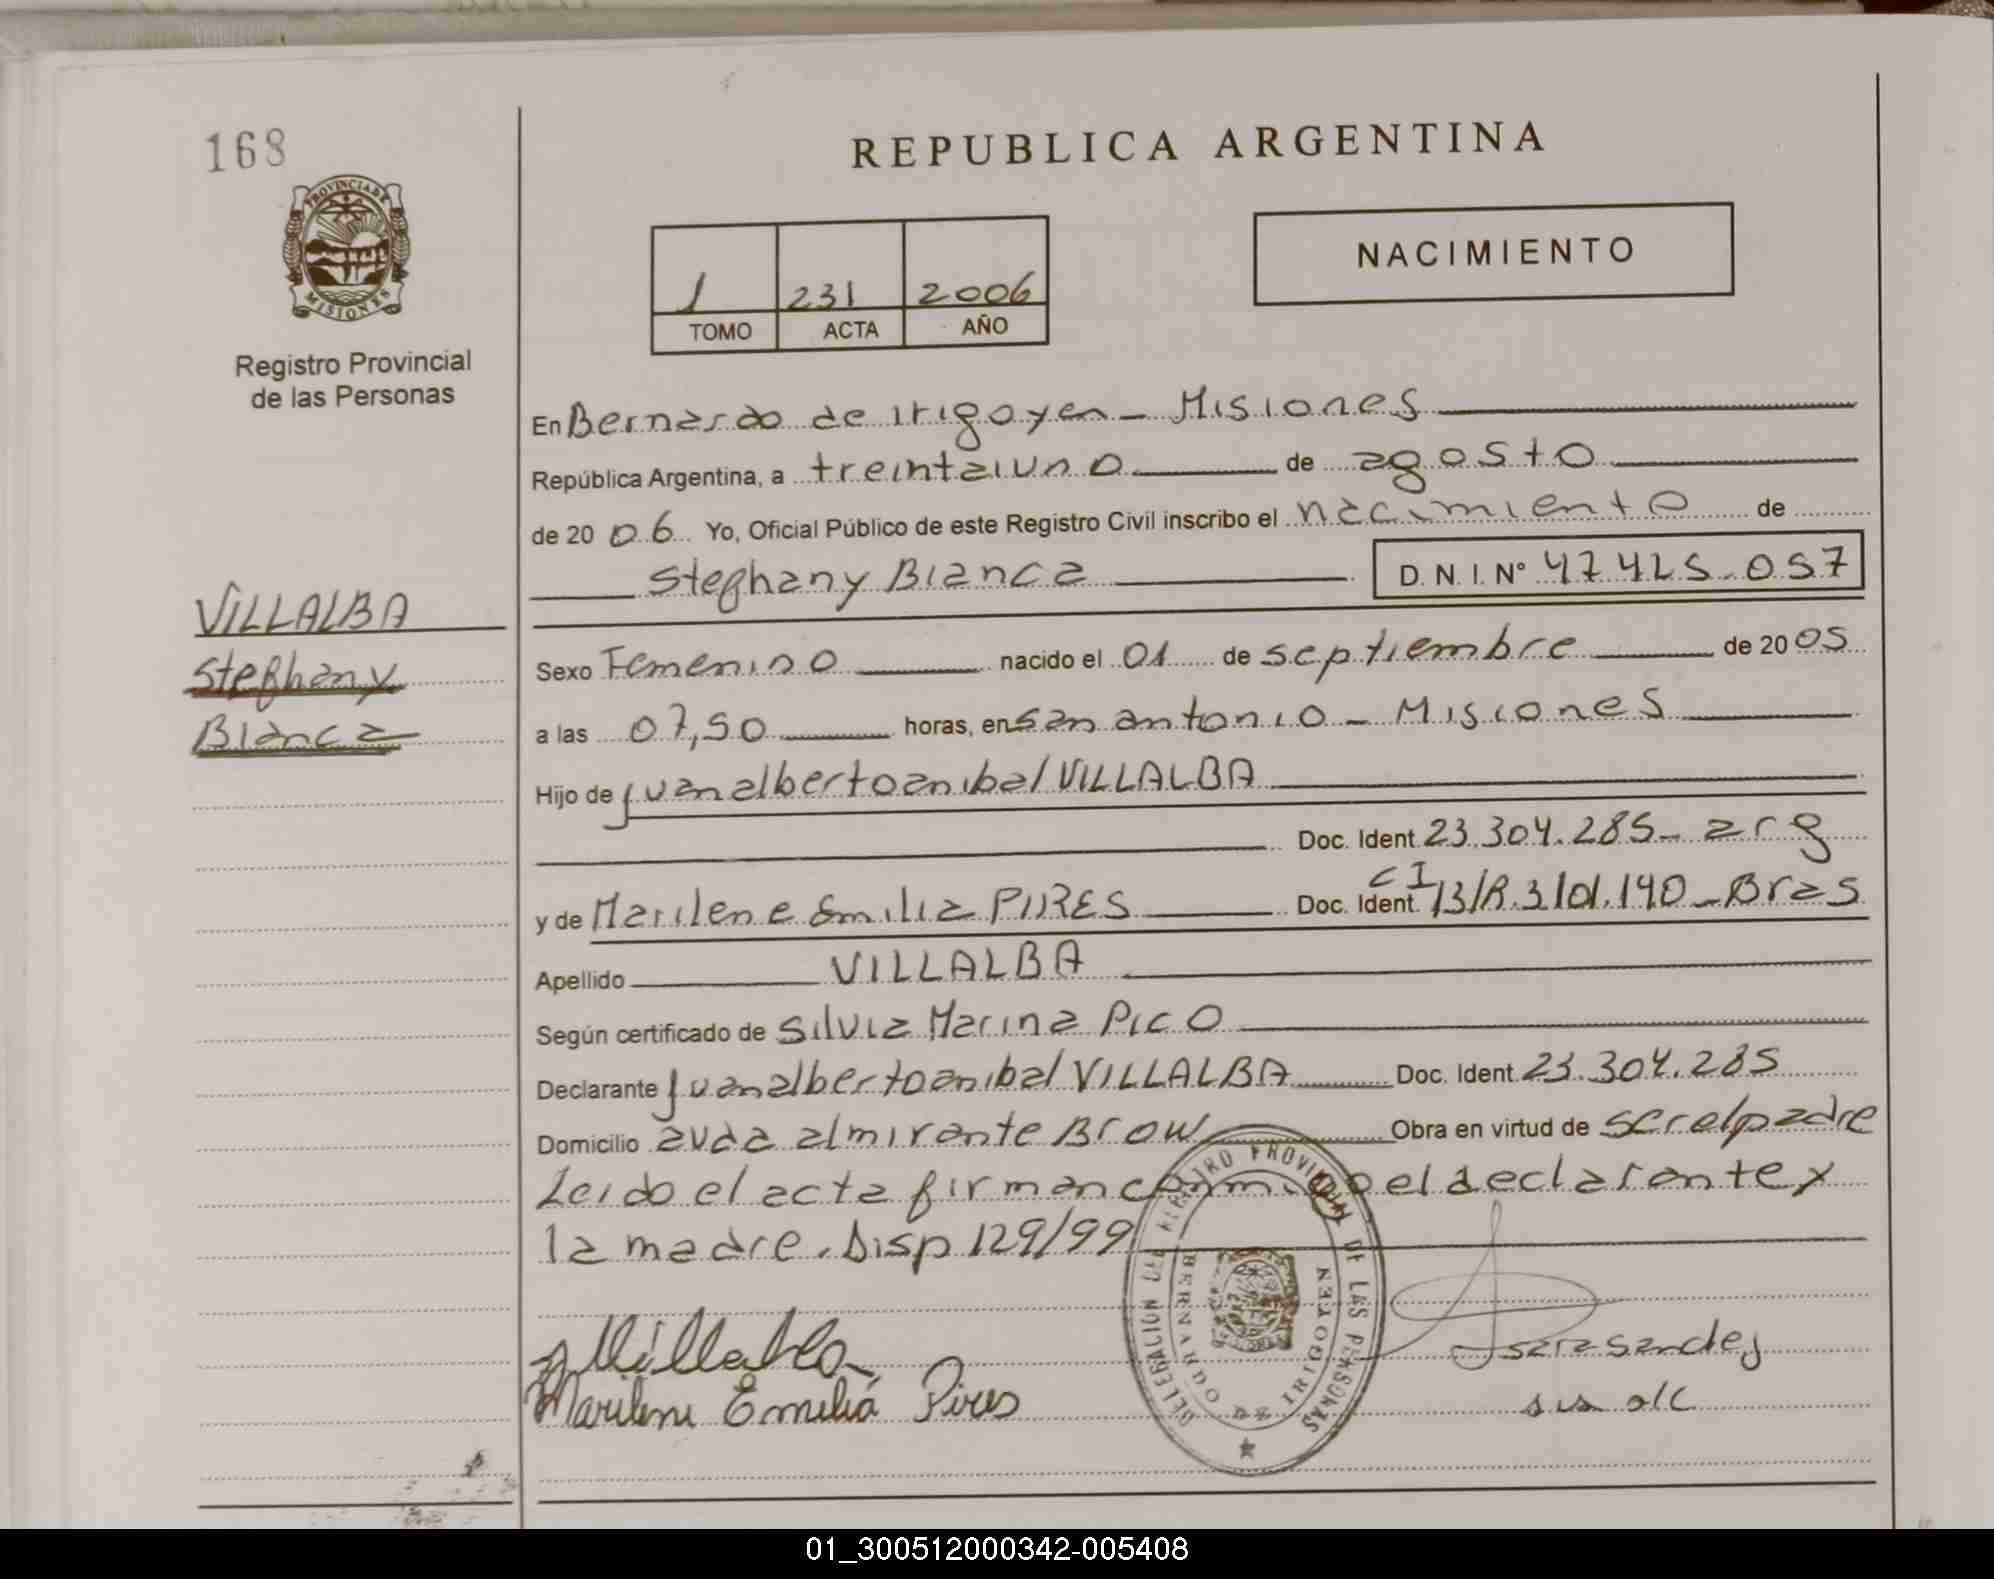 168
REPUBLICA ARGENTINA
PROVINCIA DE
MISIONES
NACIMIENTO
1 231 2006
TOMO ACTA AÑO
Registro Provincial
de las Personas
En Bernardo de Irigoyen - Misiones
República Argentina, a treintaiuno de agosto
de 2006 Yo, Oficial Público de este Registro Civil inscribo el nacimiento de
Stephany Bianca D. N. I. N° 47425.057
VILLALBA
Stephany
Bianca
Sexo Femenino nacido el 01 de septiembre de 2005
a las 07,50 horas, en san antonio - Misiones
Hijo de Juan alberto anibal VILLALBA
Doc. Ident. 23.304.285 - arg
y de Marilene Emilia PIRES Doc. Ident. CI 13/R.3101.140 - Bras
Apellido VILLALBA
Según certificado de Silvia Marina PICO
Declarante Juan alberto anibal VILLALBA Doc. Ident 23.304.285
Domicilio avda almirante Brow Obra en virtud de ser el padre
Leido el acta firman conmigo el declarante y
la madre. Disp 129/99
DELEGACION DEL REGISTRO PROVINCIAL DE LAS PERSONAS
BERNARDO DE IRIGOYEN
Villalba
Marilene Emiliá Pires
01_300512000342-005408